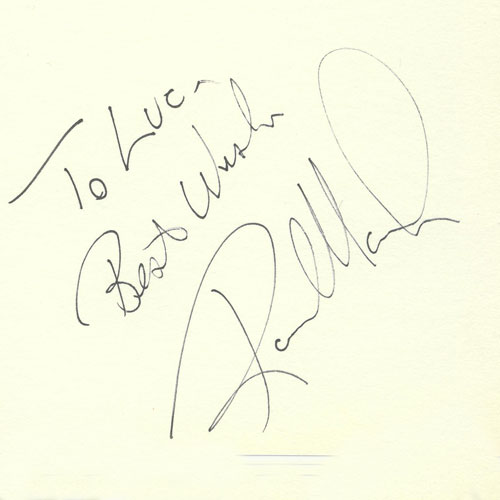 To Luc -
Best Wishes